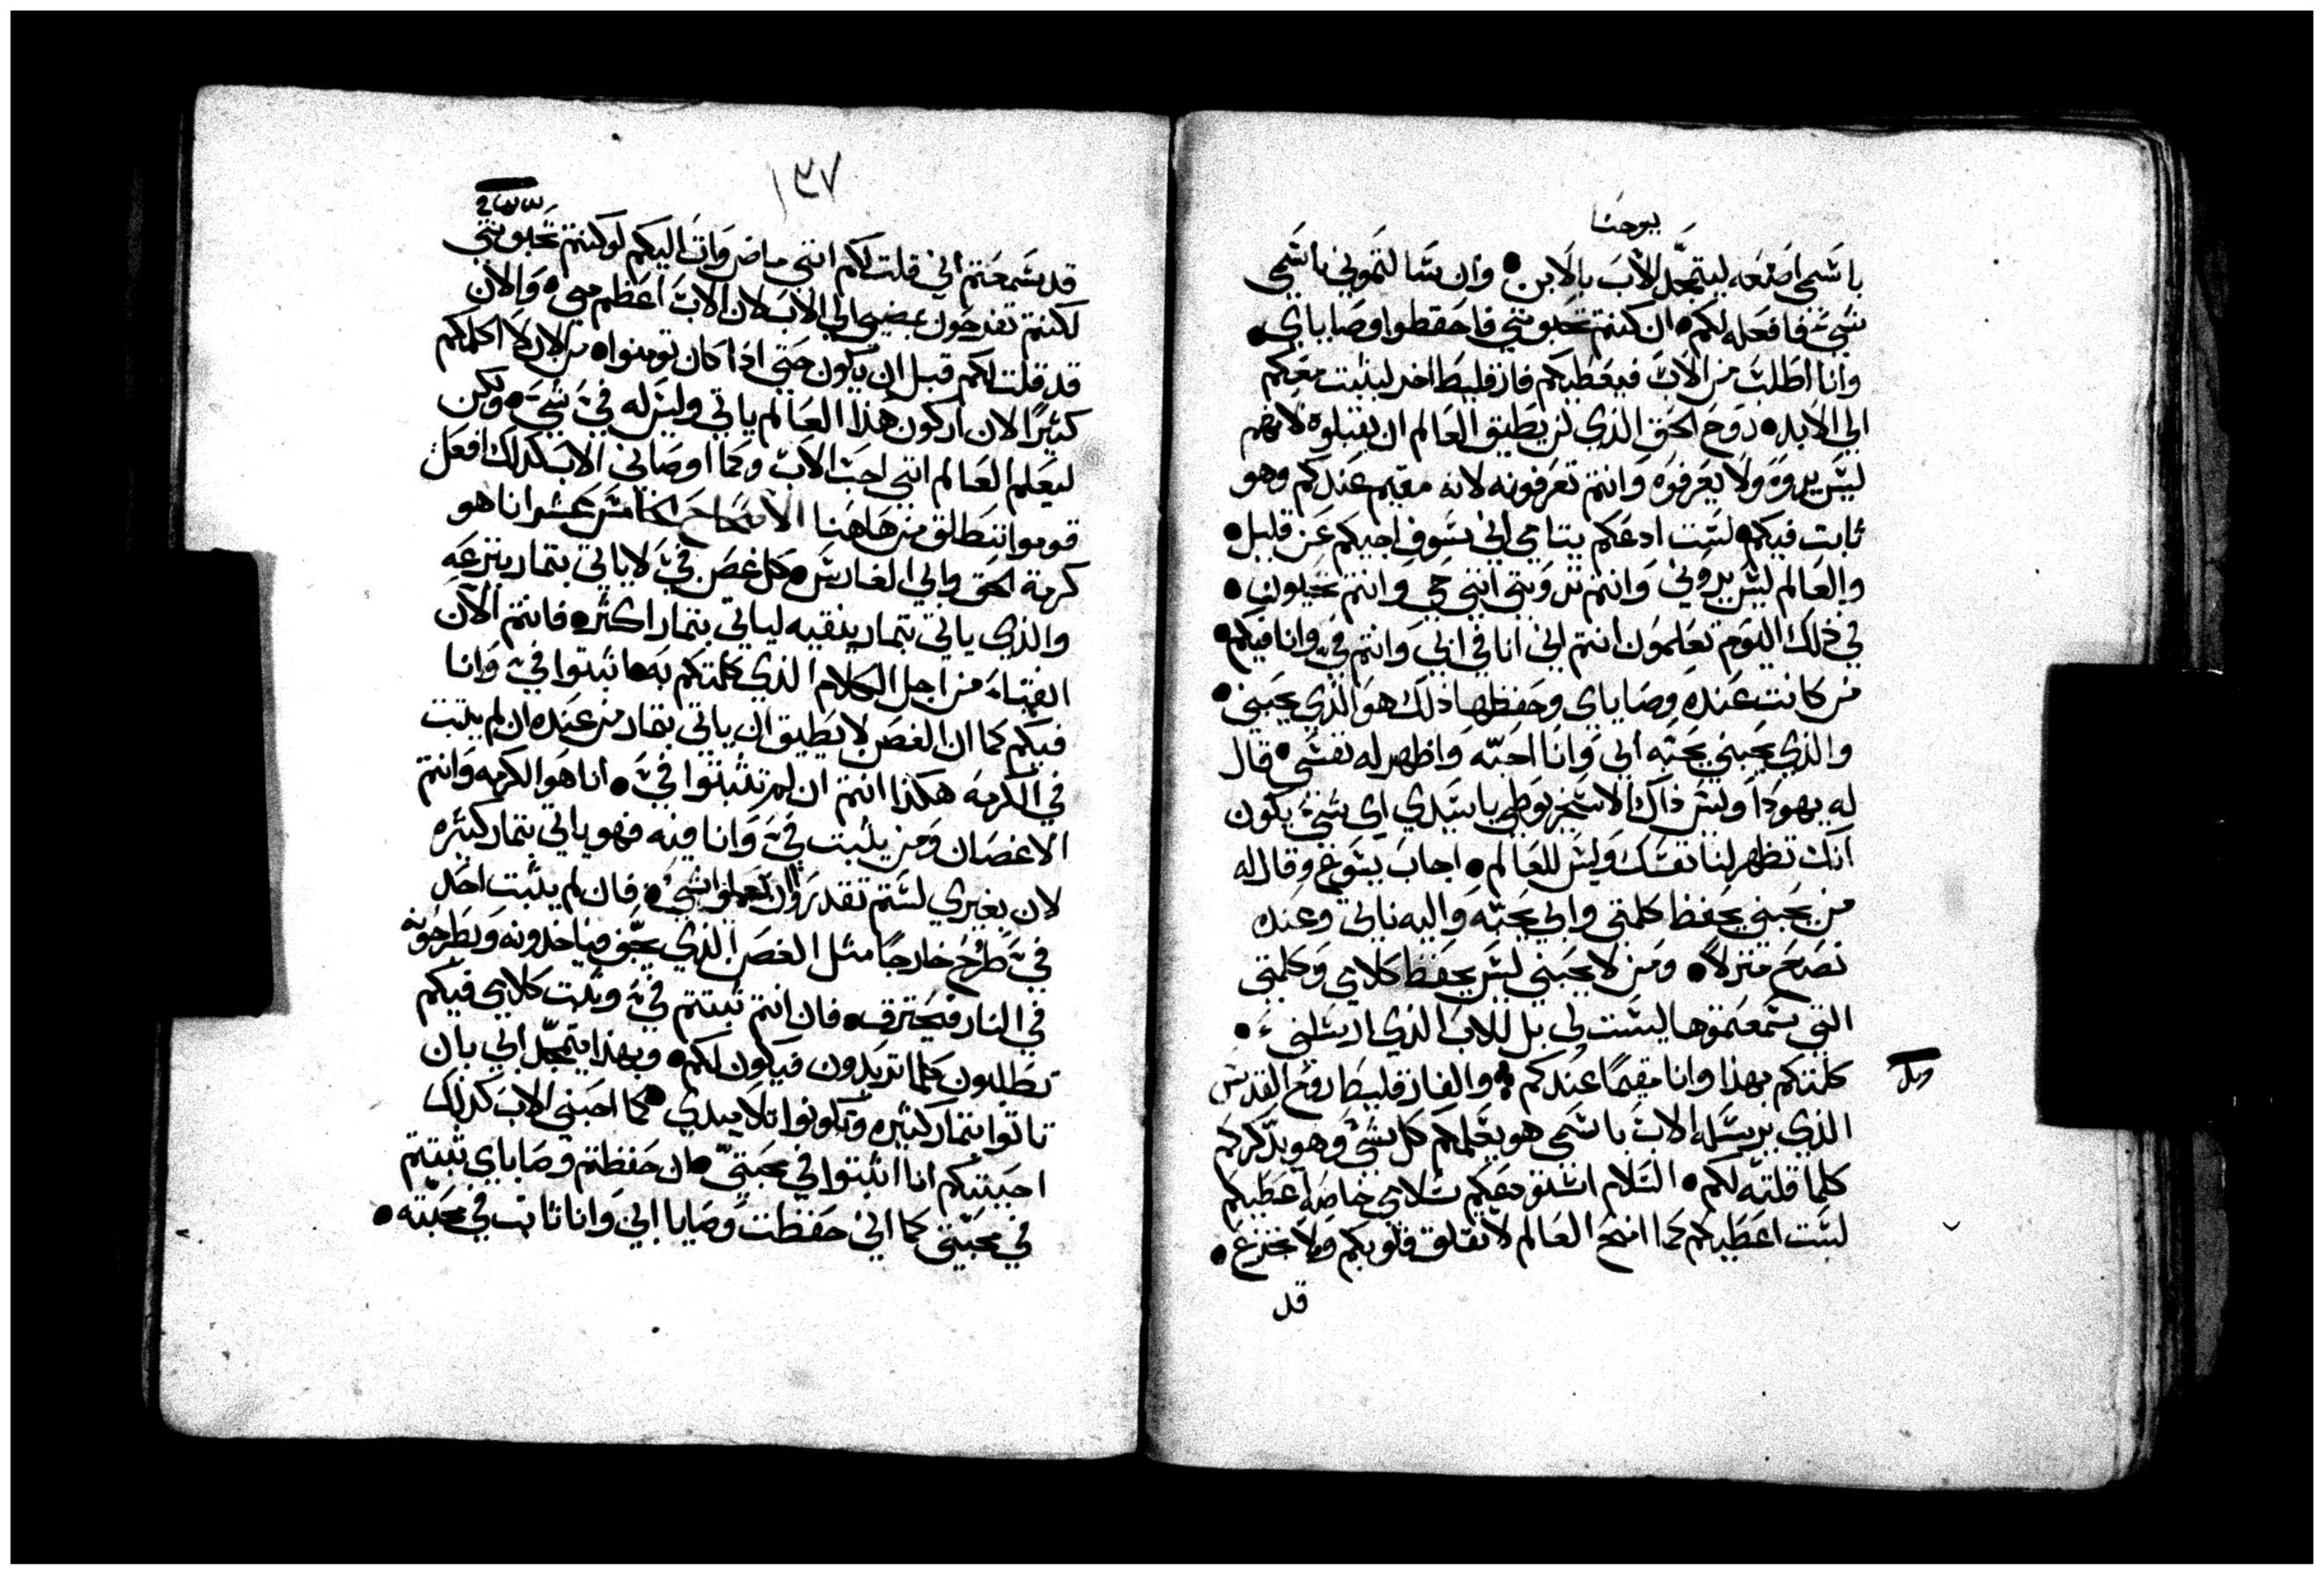 يوحنا
باسمي اصنعه ليتمجّد الاب بالابن • وان سالتموني باسمي
شيء فافعله لكم • ان كنتم تحبونني فاحفظوا وصاياي •
وانا اطلب من الاب فيعطيكم فارقليط اخر ليثبت معكم
الي الابد • روح الحق الذي لن يطيق العالم ان يقبلوه لانهم
ليس يروه ولا يعرفوه وانتم تعرفونه لانه مقيم عندكم وهو
ثابت فيكم • لست ادعكم يتامي اني سوف اجيكم عن قليل •
والعالم ليس يروني وانتم ترونني انني حي وانتم تحيون •
في ذلك اليوم تعلمون انتم اني انا في ابي وانتم فيّ وانا فيكم •
من كانت عنده وصاياي وحفظها ذلك هو الذي يحبني •
والذي يحبني يحبه ابي وانا احبّه واظهر له نفسي • قال
له يهودا وليس ذاك الاسخريوطي يا سيدي اي شيء يكون
انك تظهر لنا نفسك وليس للعالم • اجاب يسوع وقال له
من يحبني يحفظ كلمتي وابي يحبّه واليه ناتي وعنده
نصنع منزلاً • ومن لا يحبني ليس يحفظ كلامي وكلمتي
التي سمعتموها ليست لي بل للاب الذي ارسلني •
كلمتكم بهذا وانا مقيمًا عندكم • والفارقليط روح القدس
الذي يرسله الاب باسمي هو يعلمكم كل شيء وهو يذكركم
كلما قلته لكم • السلام استودعكم سلامي خاصه اعطيكم
لست اعطيكم كما امنح العالم لا تقلق قلوبكم ولا تجزع •
قد
١٣٧
قد سمعتم اني قلت لكم انني ماض وات اليكم لو كنتم تحبونني
لكنتم تفرحون بمضيي الي الاب لان الاب اعظم مني • والان
قد قلت لكم قبل ان يكون حتي اذا كان تومنوا • من الان لا اكلمكم
كثيرًا لان اركون هذا العالم ياتي وليس له فيّ شيء • ولكن
ليعلم العالم انني احب الاب وكما اوصاني الاب كذلك افعل
قوموا ننطلق من هاهنا الاصحاح الخامس عشر انا هو
كرمة الحق وابي الغارس • كل غصن فيّ لا ياتي بثمار ينزعه
والذي ياتي بثمار ينقيه لياتي بثمار اكثر • فانتم الان
انقياء من اجل الكلام الذي كلمتكم به • اثبتوا فيّ وانا
فيكم كما ان الغصن لا يطيق ان ياتي بثمار من عنده ان لم يثبت
في الكرمه هكذا انتم ان لم تثبتوا فيّ • انا هو الكرمه وانتم
الاغصان ومن يثبت فيّ وانا فيه فهو ياتي بثمار كثيره
لان بغيري لستم تقدروا ان تعملوا شيء • فان لم يثبت احد
فيّ طرح خارجًا مثل الغصن الذي يجف فياخذونه ويطرحونه
في النار فيحترق • فان انتم ثبتتم فيّ وثبت كلامي فيكم
تطلبون كلما تريدون فيكون لكم • وبهذا يتمجّد ابي بان
تاتوا بثمار كثيره وتكونوا تلاميدي • كما احبني الاب كذلك
احببتكم انا اثبتوا في محبتيّ • ان حفظتم وصاياي ثبتتم
في محبّتي كما اني حفظت وصايا ابي وانا ثابت في محبّته •